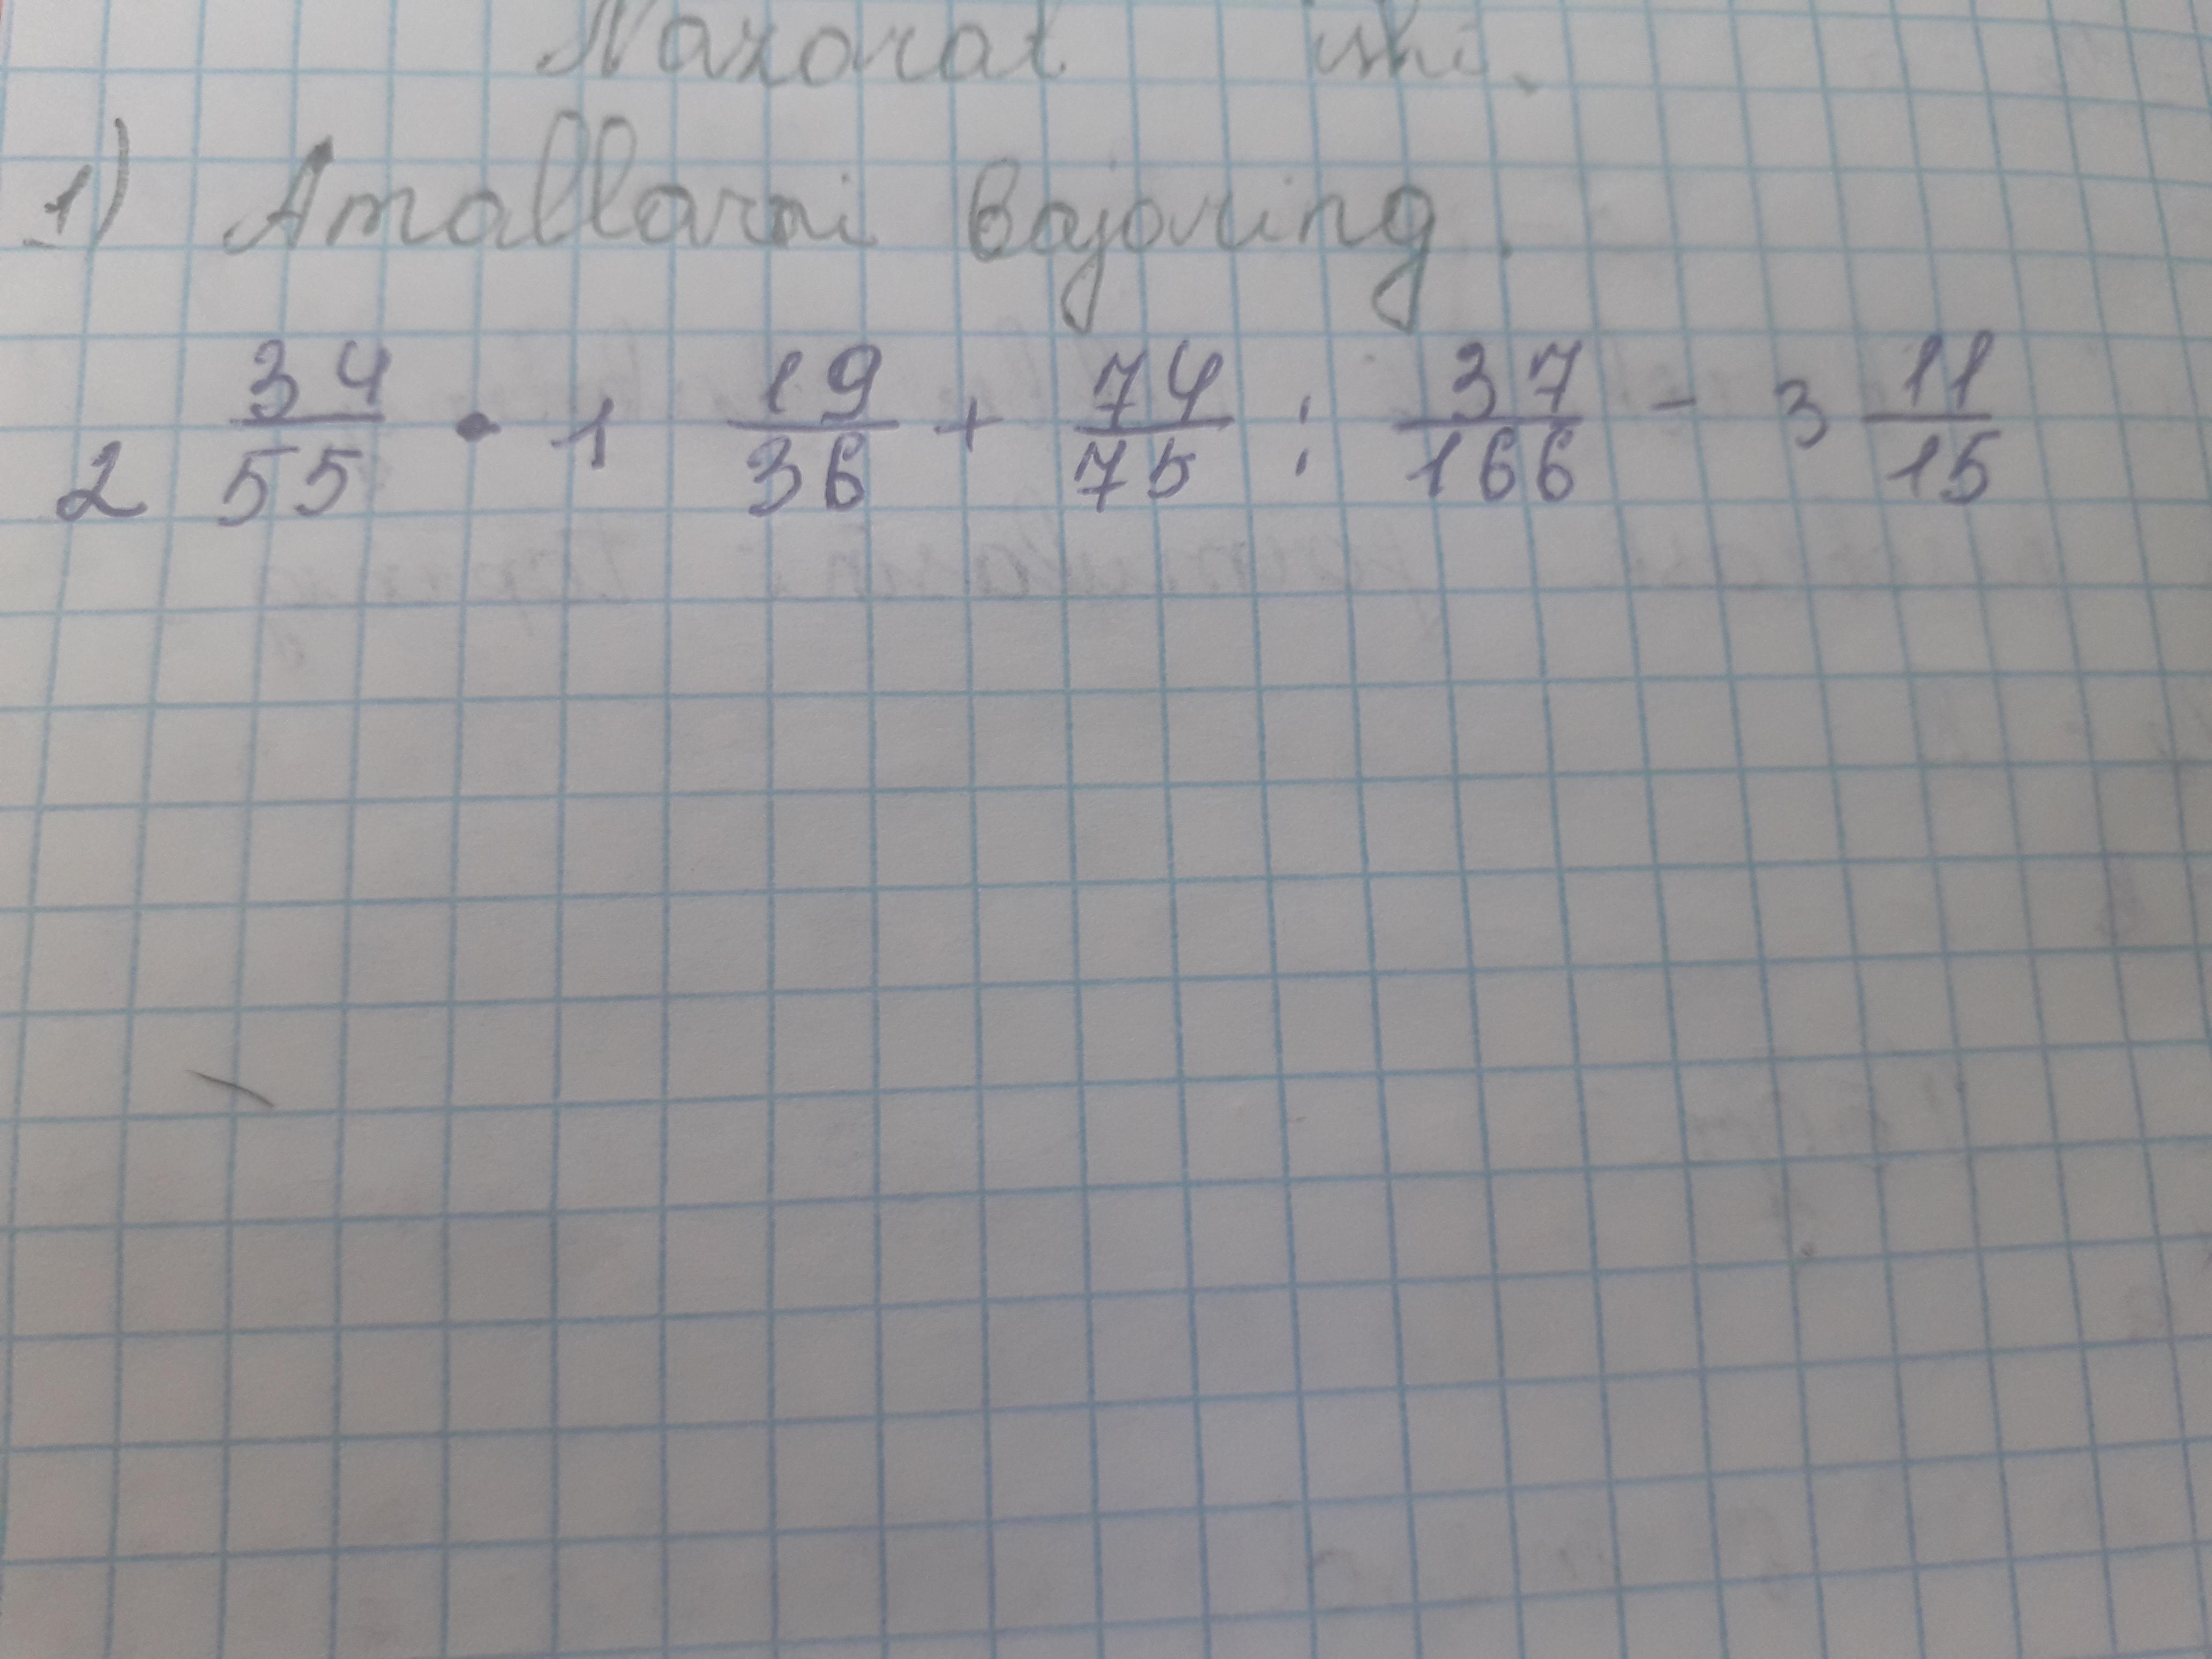 Nazorat ishi.
1) Amallarni bajaring.
2 34/55 • 1 19/36 + 74/75 : 37/166 - 3 11/15